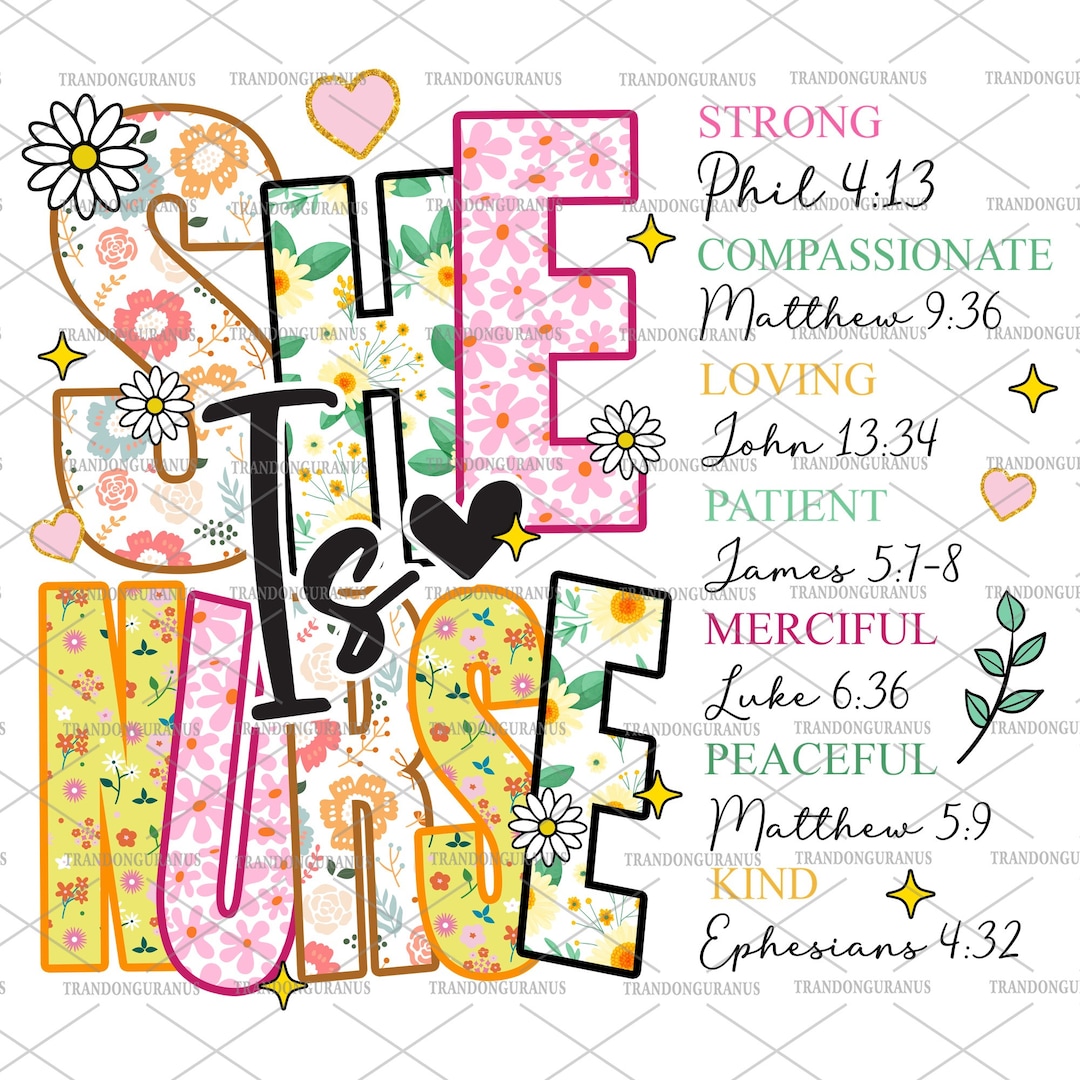 SHE
Is
NURSE
STRONG
Phil 4:13
COMPASSIONATE
Matthew 9:36
LOVING
John 13:34
PATIENT
James 5:7-8
MERCIFUL
Luke 6:36
PEACEFUL
Matthew 5:9
KIND
Ephesians 4:32
TRANDONGURANUS